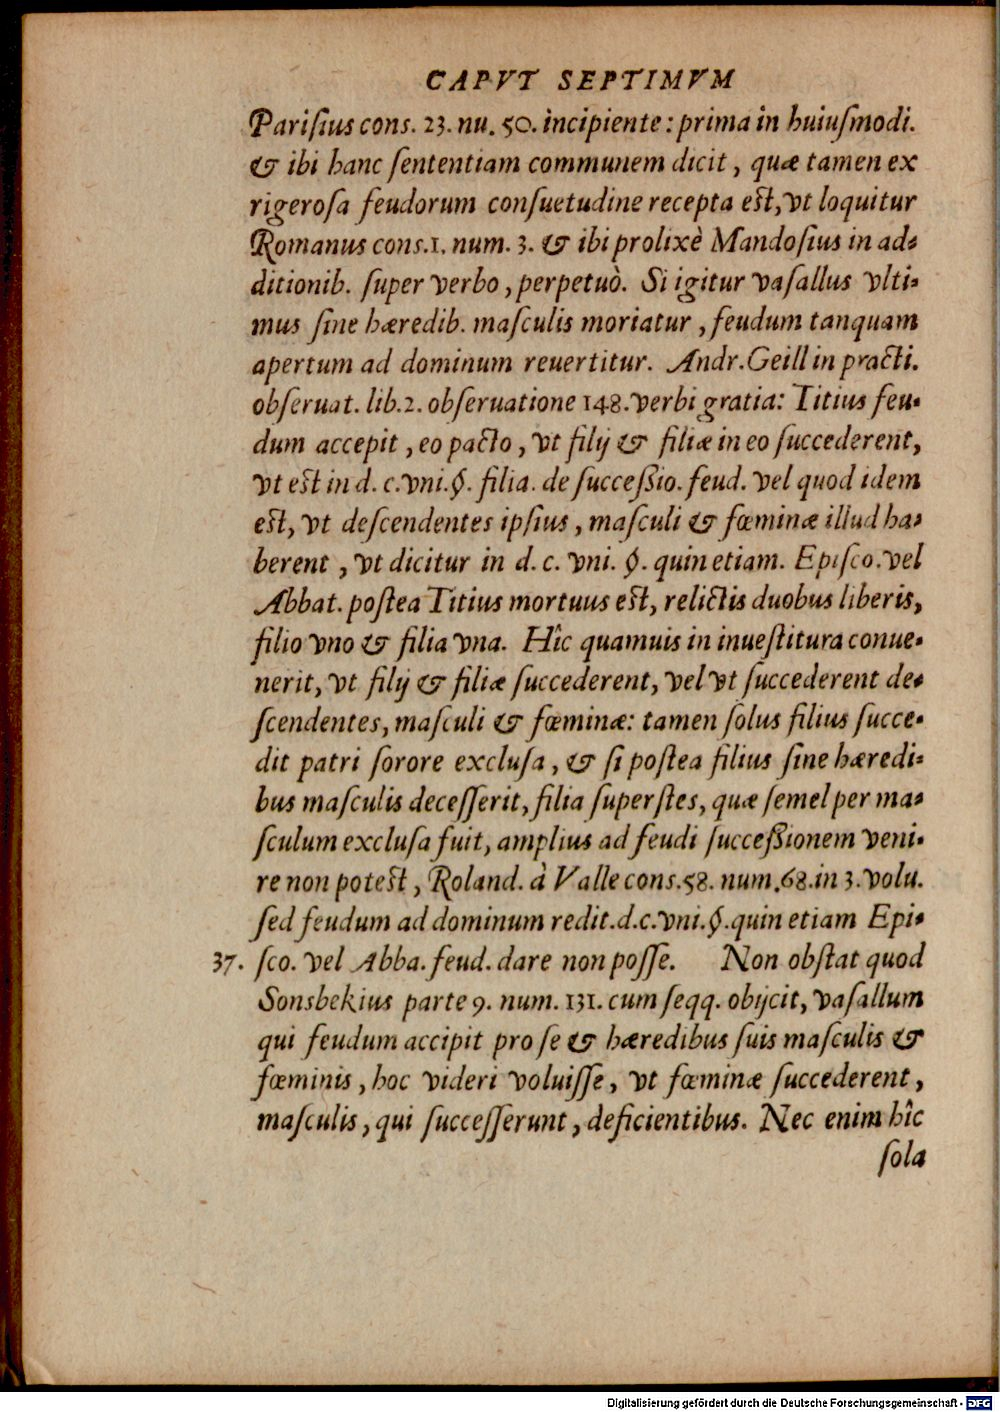 CAPVT SEPTIMVM
Pariſius cons. 23. nu. 50. incipiente: prima in huiuſmodi.
& ibi hanc ſententiam communem dicit, quæ tamen ex
rigeroſa feudorum conſuetudine recepta eſt, vt loquitur
Romanus cons. 1. num. 3. & ibi prolixè Mandoſius in ad-
ditionib. ſuper verbo, perpetuò. Si igitur vaſallus vlti-
mus ſine hæredib. maſculis moriatur, feudum tanquam
apertum ad dominum reuertitur. Andr. Geill in practi.
obſeruat. lib. 2. obſeruatione 148. verbi gratia: Titius feu-
dum accepit, eo pacto, vt filij & filiæ in eo ſuccederent,
vt eſt in d. c. vni. §. filia. de ſucceßio. feud. vel quod idem
eſt, vt deſcendentes ipſius, maſculi & fœminæ illud ha-
berent, vt dicitur in d. c. vni. §. quin etiam. Epiſco. vel
Abbat. poſtea Titius mortuus eſt, relictis duobus liberis,
filio vno & filia vna. Hîc quamuis in inueſtitura conue-
nerit, vt filij & filiæ ſuccederent, vel vt ſuccederent de-
ſcendentes, maſculi & fœminæ: tamen ſolus filius ſucce-
dit patri ſorore excluſa, & ſi poſtea filius ſine hæredi-
bus maſculis deceſſerit, filia ſuperſtes, quæ ſemel per ma-
ſculum excluſa fuit, amplius ad feudi ſucceßionem veni-
re non poteſt, Roland. à Valle cons. 58. num. 68. in 3. volu.
ſed feudum ad dominum redit. d. c. vni. §. quin etiam Epi-
37. ſco. vel Abba. feud. dare non poſſe. Non obſtat quod
Sonsbekius parte 9. num. 131. cum ſeqq. obijcit, vaſallum
qui feudum accipit pro ſe & hæredibus ſuis maſculis &
fœminis, hoc videri voluiſſe, vt fœminæ ſuccederent,
maſculis, qui ſucceſſerunt, deficientibus. Nec enim hîc
ſola
Digitalisierung gefördert durch die Deutsche Forschungsgemeinschaft - DFG